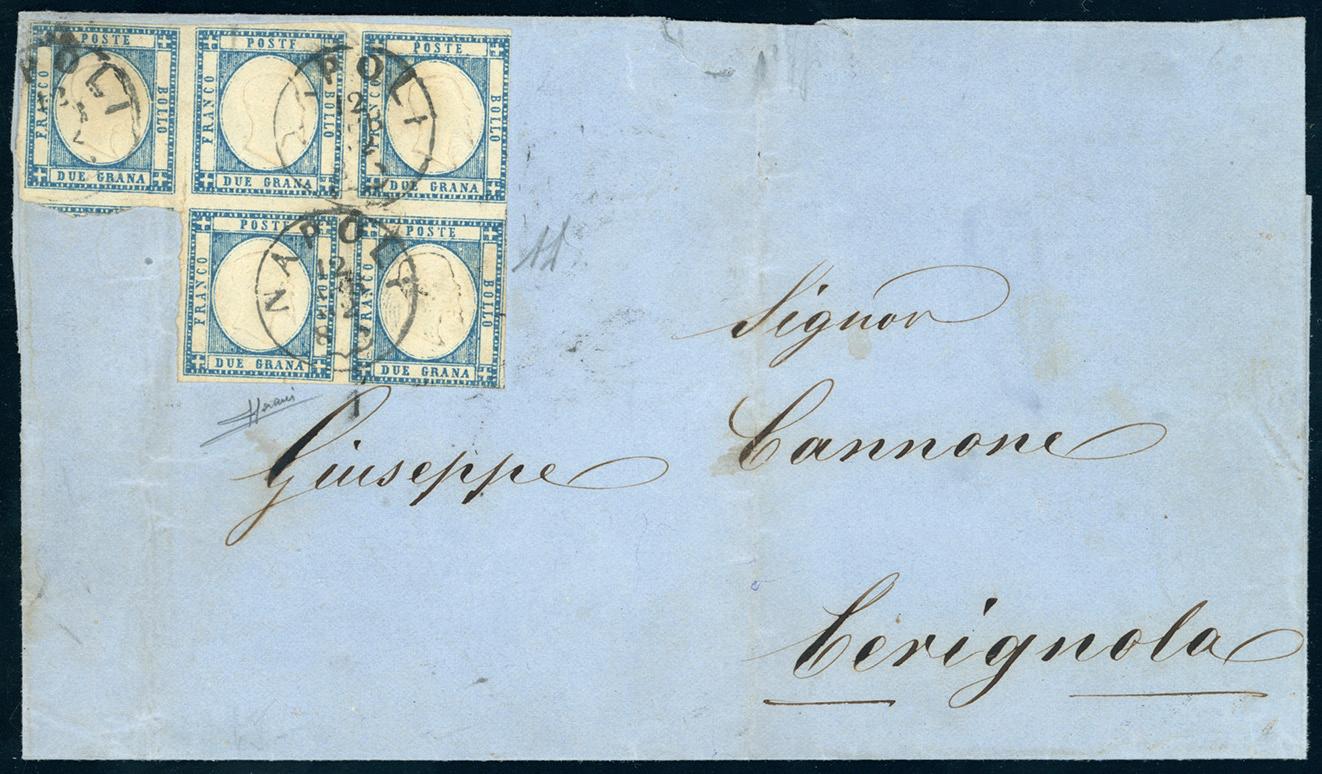 POSTE POSTE POSTE
FRANCO BOLLO FRANCO BOLLO FRANCO BOLLO
DUE GRANA DUE GRANA DUE GRANA
POLI
POLI
12
POSTE POSTE
FRANCO BOLLO FRANCO BOLLO
DUE GRANA DUE GRANA
NAPOLI
12
11
Signor
Giuseppe Cannone
Cerignola